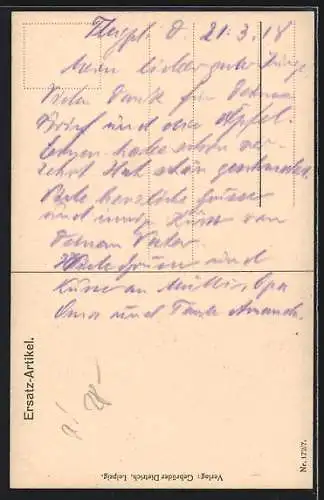 d. 21.3.18
Mein lieber guter Junge
Vielen Dank für Deinen
Brief und die Äpfel.
habe schon ver-
zehrt. Hat schön geschmeckt.
Viele herzliche Grüsse
und innige Küsse von
Deinem Vater.
Viele Grüsse und
Küsse an Mutti, Opa
Oma und Tante Amanda.
Ersatz-Artikel.
Verlag: Gebrüder Dietrich, Leipzig.
Nr. 172/7.